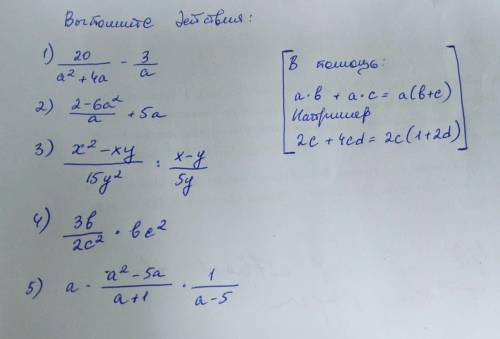 Выполните действия:
1) \frac{20}{a² + 4a} - \frac{3}{a}
2) \frac{2 - 6a²}{a} + 5a
3) \frac{x² - xy}{15y²} : \frac{x - y}{5y}
4) \frac{3b}{2c²} · bc²
5) a - \frac{a² - 5a}{a + 1} · \frac{1}{a - 5}
В помощь:
a·b + a·c = a(b+c)
Например
2c + 4cd = 2c(1+2d)